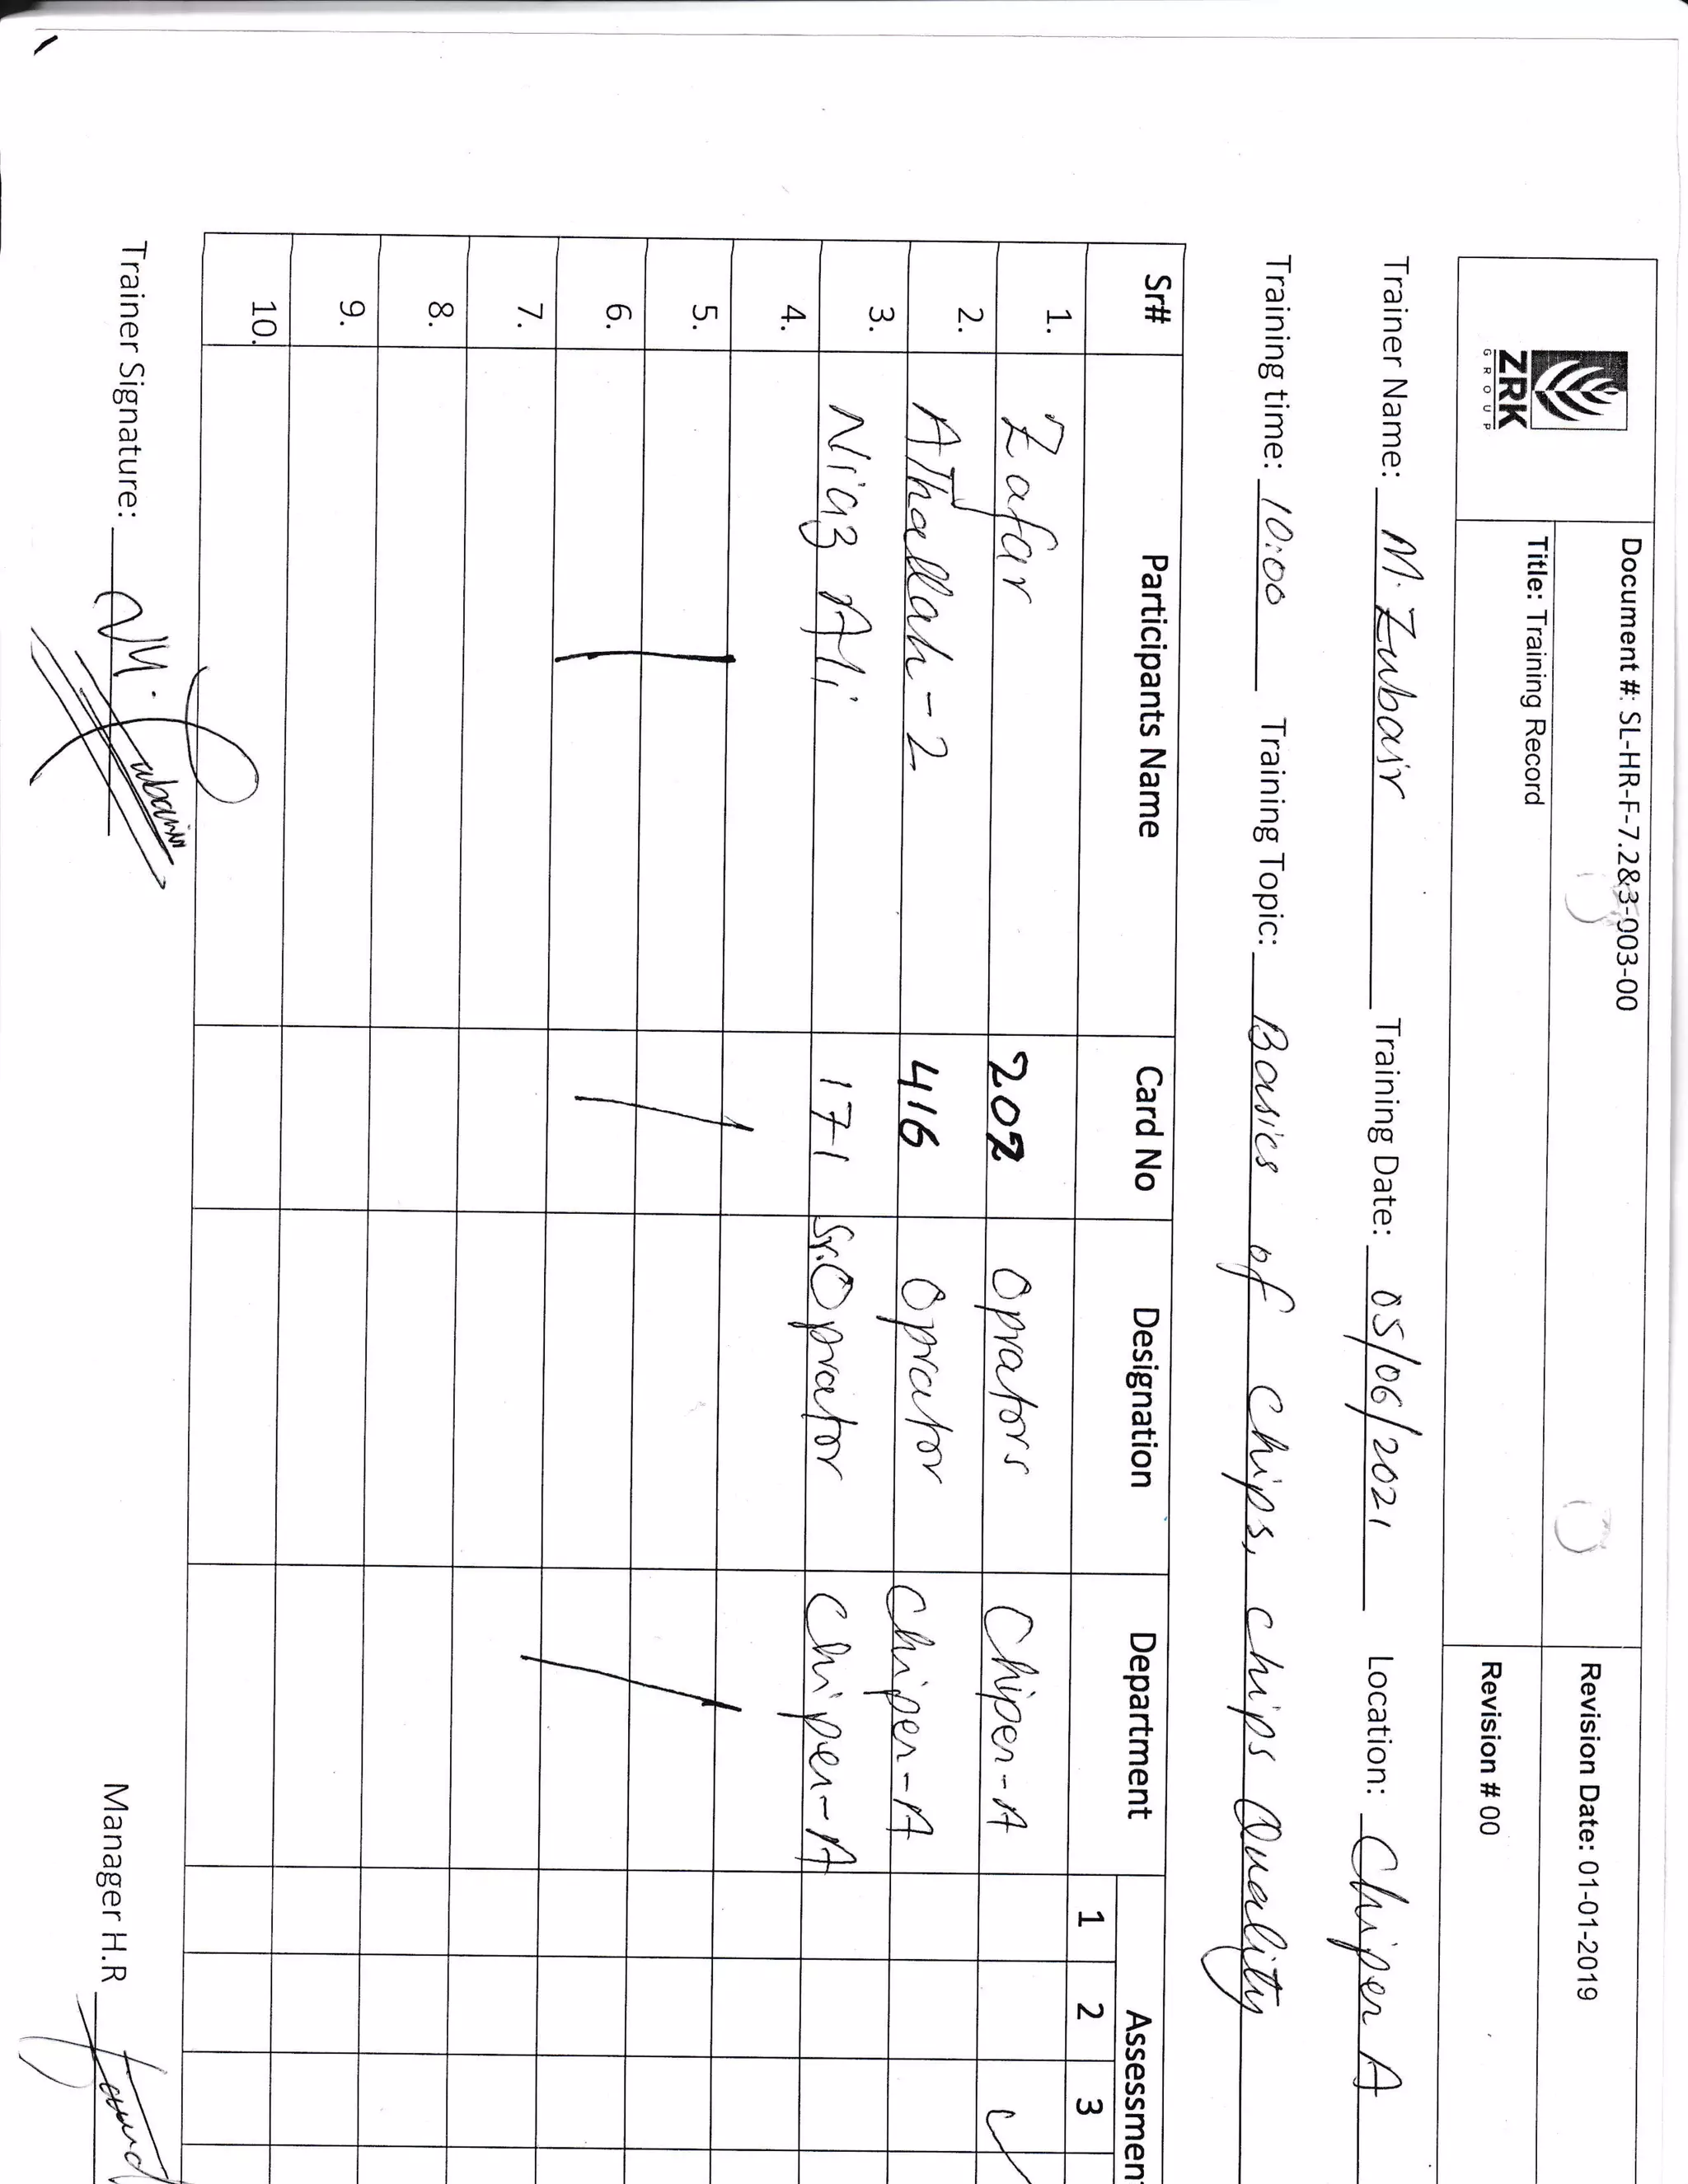 ZRK
GROUP
Document #: SL-HR-F-7.2&3-003-00
Revision Date: 01-01-2019
Title: Training Record
Revision # 00
Trainer Name: M. Zubair Training Date: 05/06/2021 Location: Chiper A
Training time: 10:00 Training Topic: Basics of Chips, chips Quality
Sr# Participants Name Card No Designation Department Assessmen
1 2 3
1. Zafar 202 Oprators Chiper-A
2. AThaellah-2 416 Oprator Chiper-A
3. Niaz Ali 171 Sr.Oprator Chiper-A
4.
5.
6.
7.
8.
9.
10.
Trainer Signature: M. Zubair Manager H.R